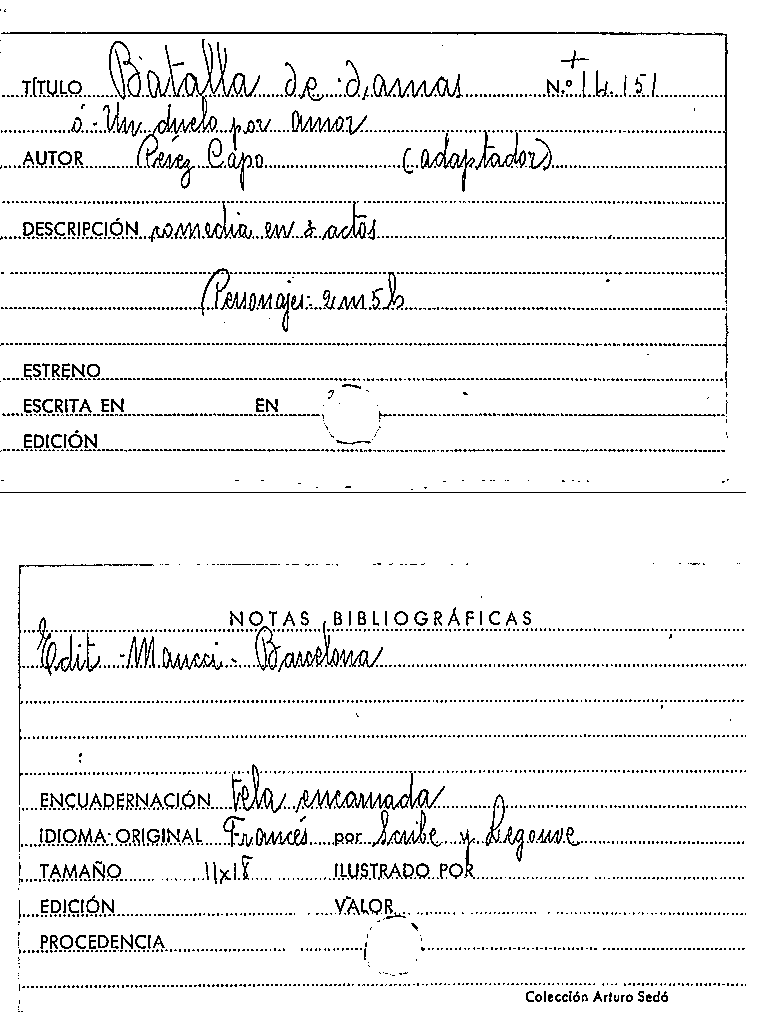 TÍTULO Batalla de damas N.º 14.151
ó - Un duelo por amor
AUTOR Pérez Capo (adaptador)
DESCRIPCIÓN comedia en 3 actos
Personajes: 2 m 5 h
ESTRENO
ESCRITA EN EN
EDICIÓN
NOTAS BIBLIOGRÁFICAS
Edit - Maucci - Barcelona
ENCUADERNACIÓN tela encarnada
IDIOMA ORIGINAL Francés por Scribe y Legouve
TAMAÑO 11x18 ILUSTRADO POR
EDICIÓN VALOR
PROCEDENCIA
Colección Arturo Sedó